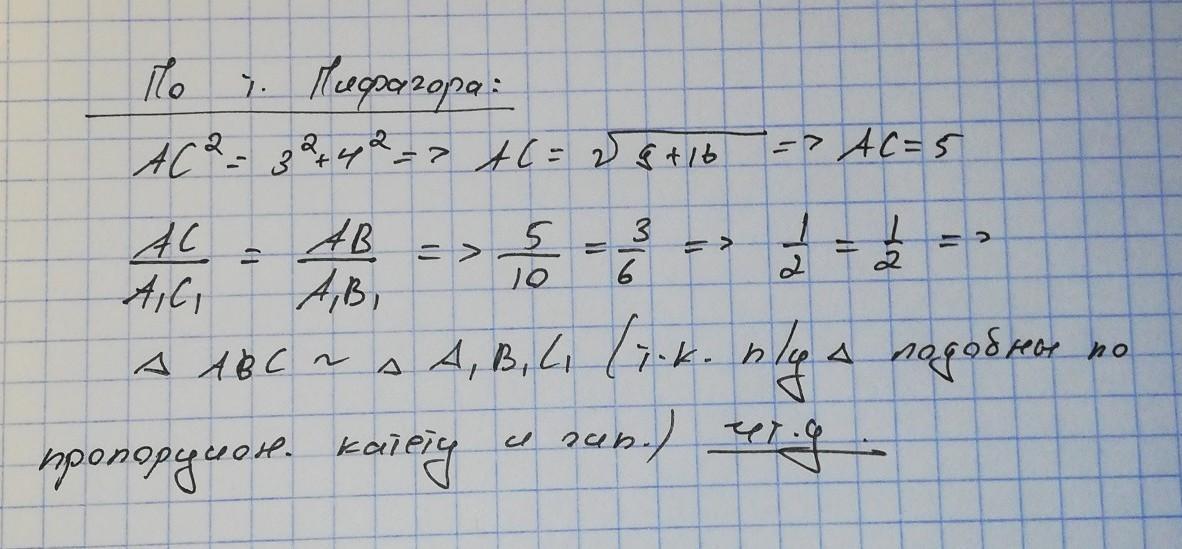 По т. Пифагора:
AC² = 3² + 4² => AC = √(9+16) => AC = 5
AC/A₁C₁ = AB/A₁B₁ => 5/10 = 3/6 => 1/2 = 1/2 =>
△ ABC ~ △ A₁B₁C₁ (т.к. п/у △ подобны по
пропорцион. катету и гип.) чт.д.